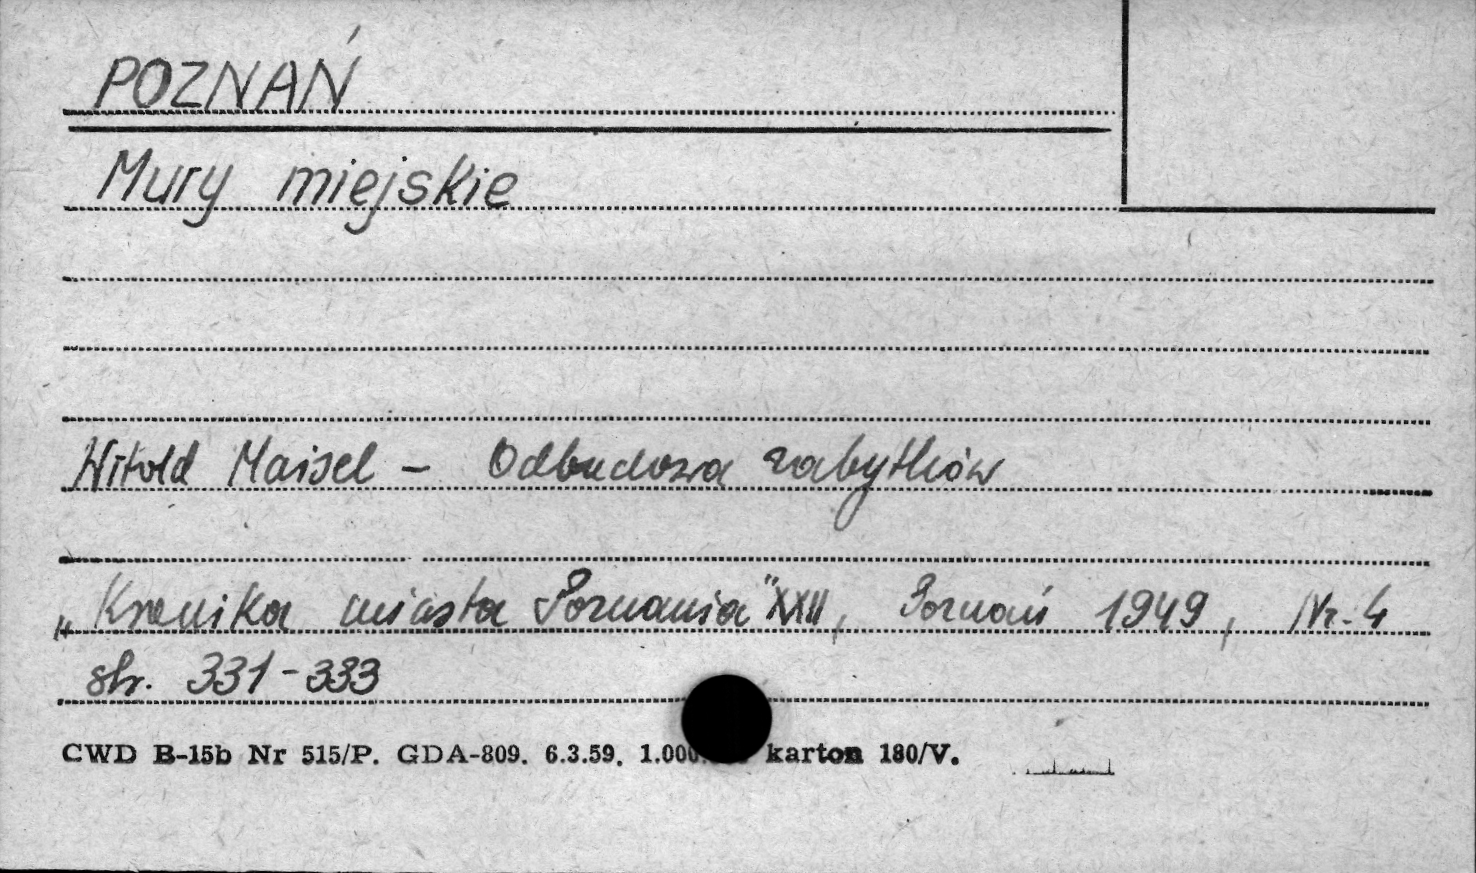 POZNAŃ
Mury miejskie
Witold Maisel – Odbudowa zabytków
„Kronika miasta Poznania" XXII, Poznań 1949, Nr. 4
str. 331-333
CWD B-15b Nr 515/P. GDA-809. 6.3.59. 1.000 karton 180/V.